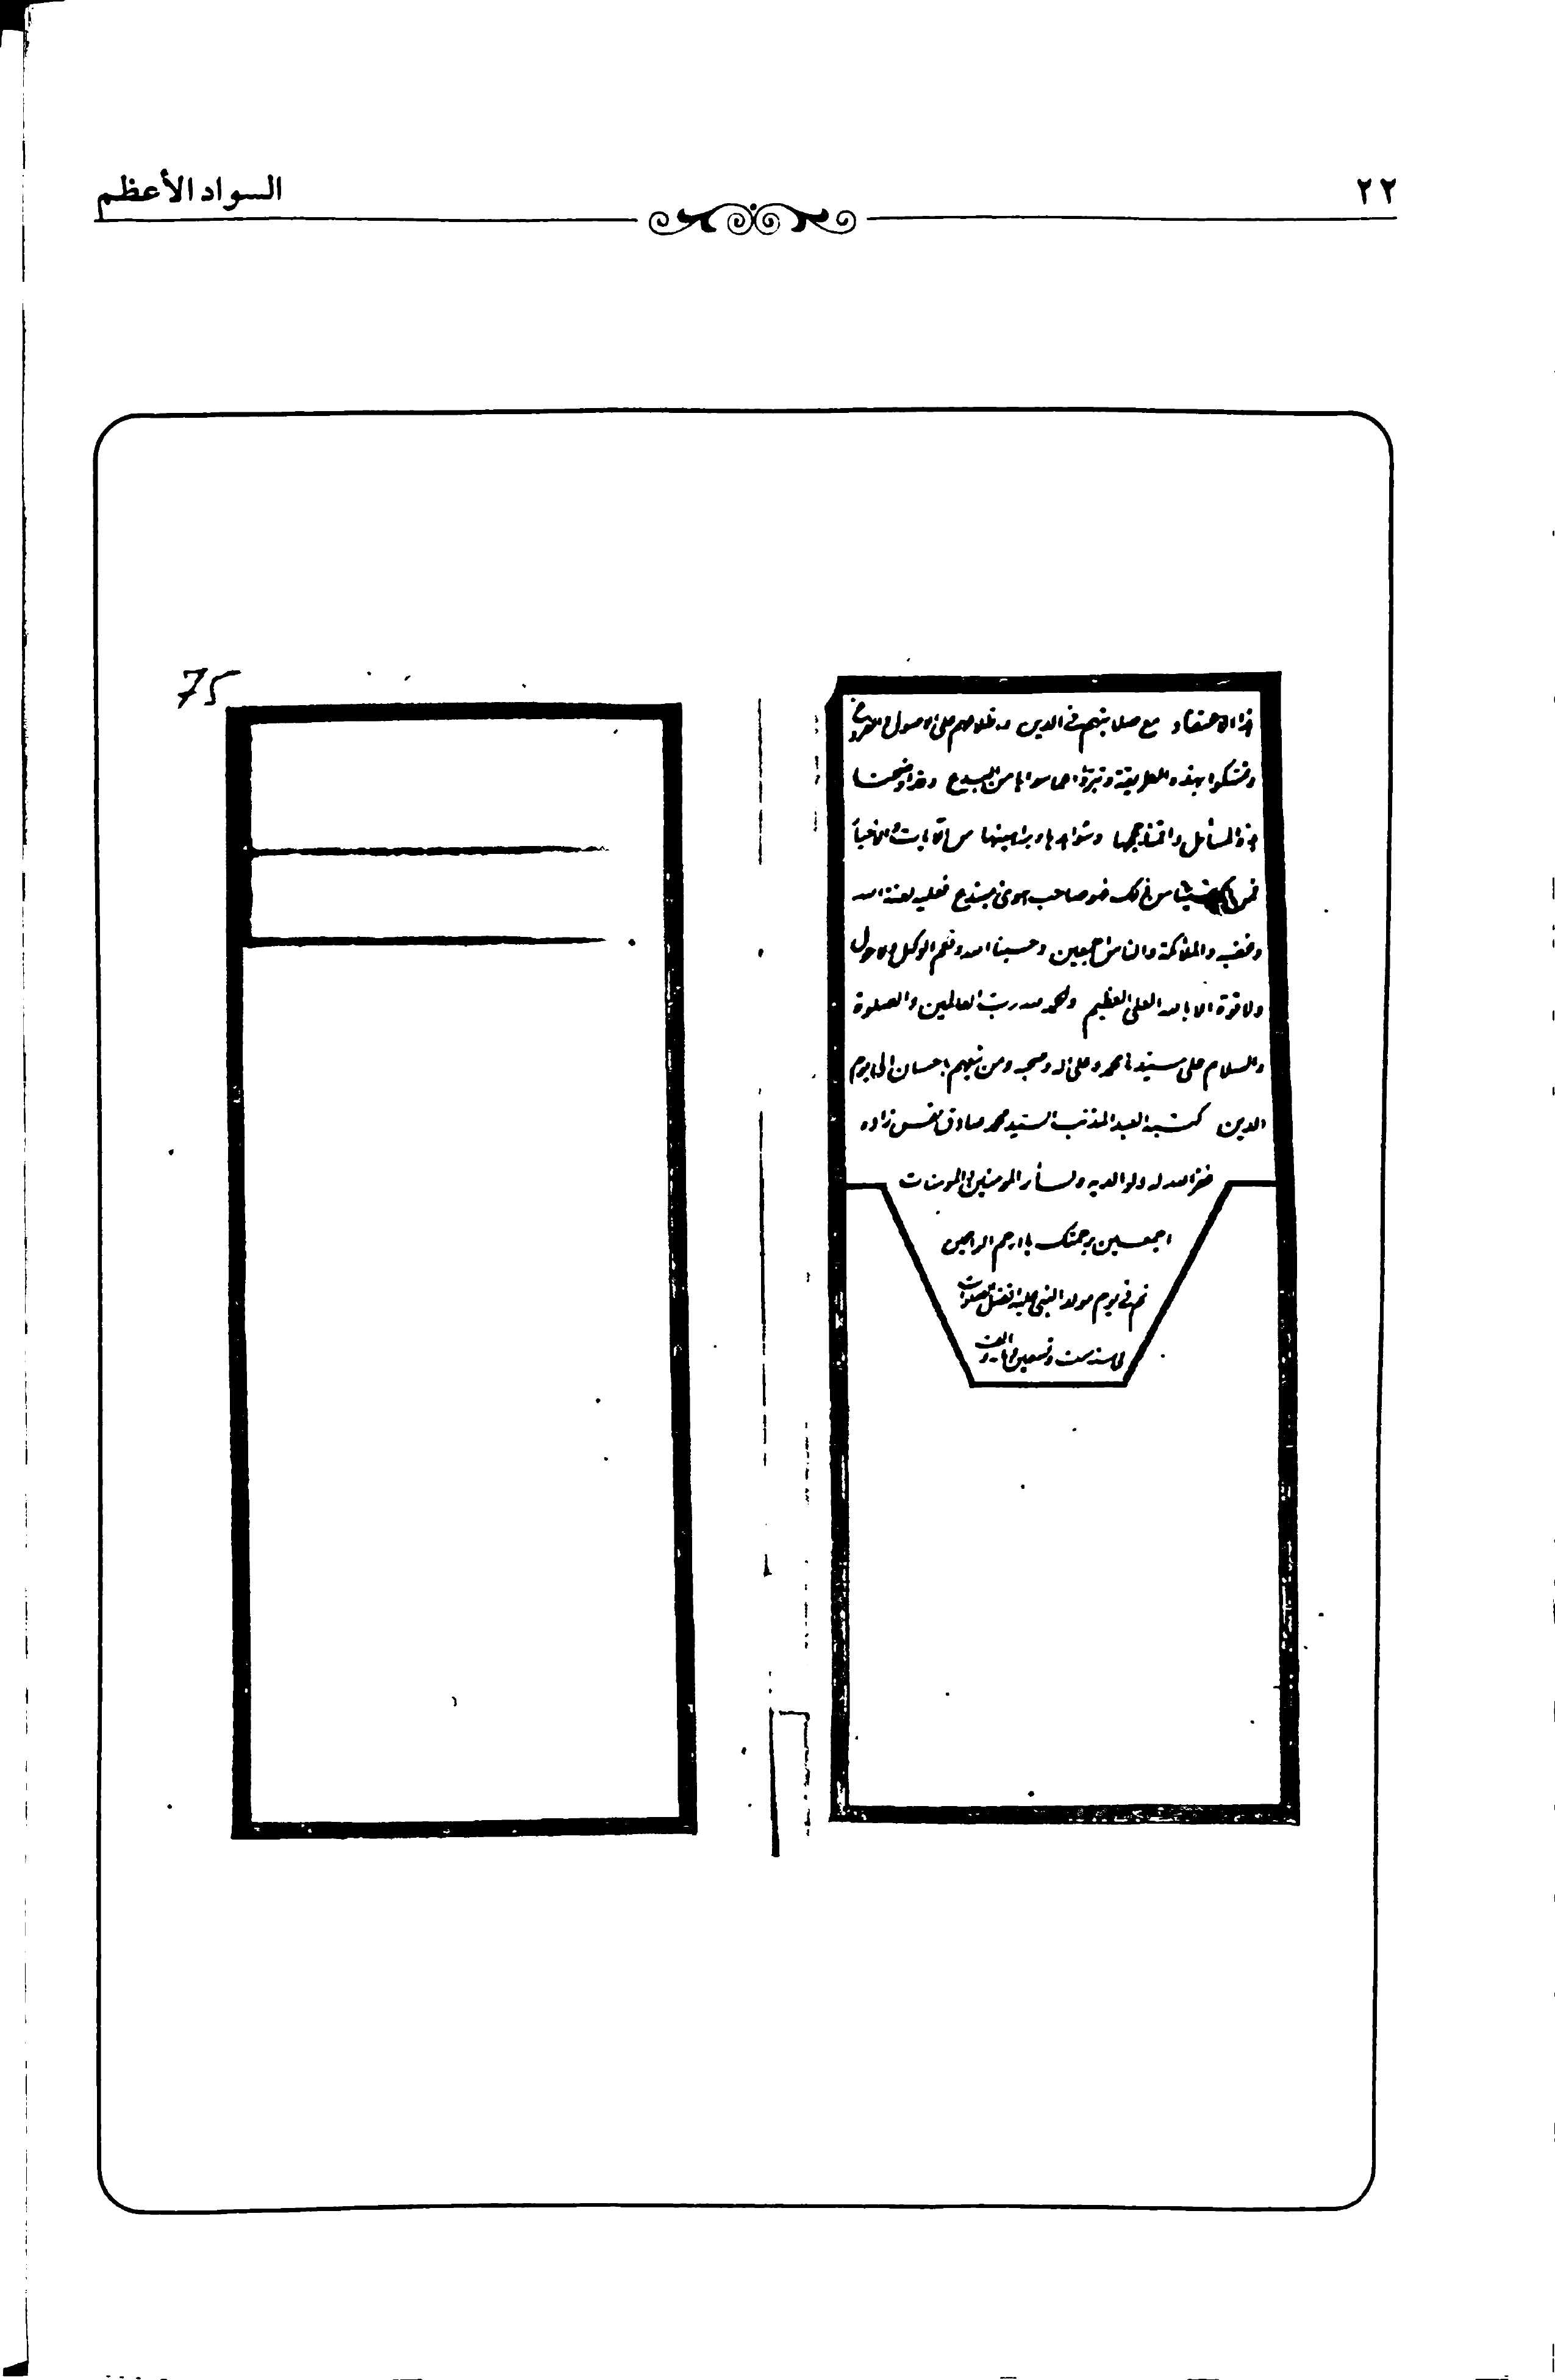 ٢٢
السواد الأعظم
هذا الاعتقاد مع صلابتهم في الدين
وتمسكوا بهذه الطريقة وتبرؤا عما سواها من البدع
هذه المسائل وشواهدها وبراهينها من الآيات والأخبار
من ذلك فهو صاحب هوى مبتدع فعليه لعنة الله
وغضبه والملائكة والناس اجمعين وحسبنا الله ونعم الوكيل ولا حول
ولا قوة الا بالله العلي العظيم والحمد لله رب العالمين والصلوة
والسلام على سيدنا محمد وعلى اله وصحبه ومن تبعهم باحسان الى يوم
الدين كتبه العبد المذنب السيد محمد صادق زاده
غفر الله له ولوالديه ولسائر المومنين والمومنات
اجمعين برحمتك يا ارحم الراحمين
تم في يوم مولد النبي عليه افضل الصلوات
ست وتسعين والف
75